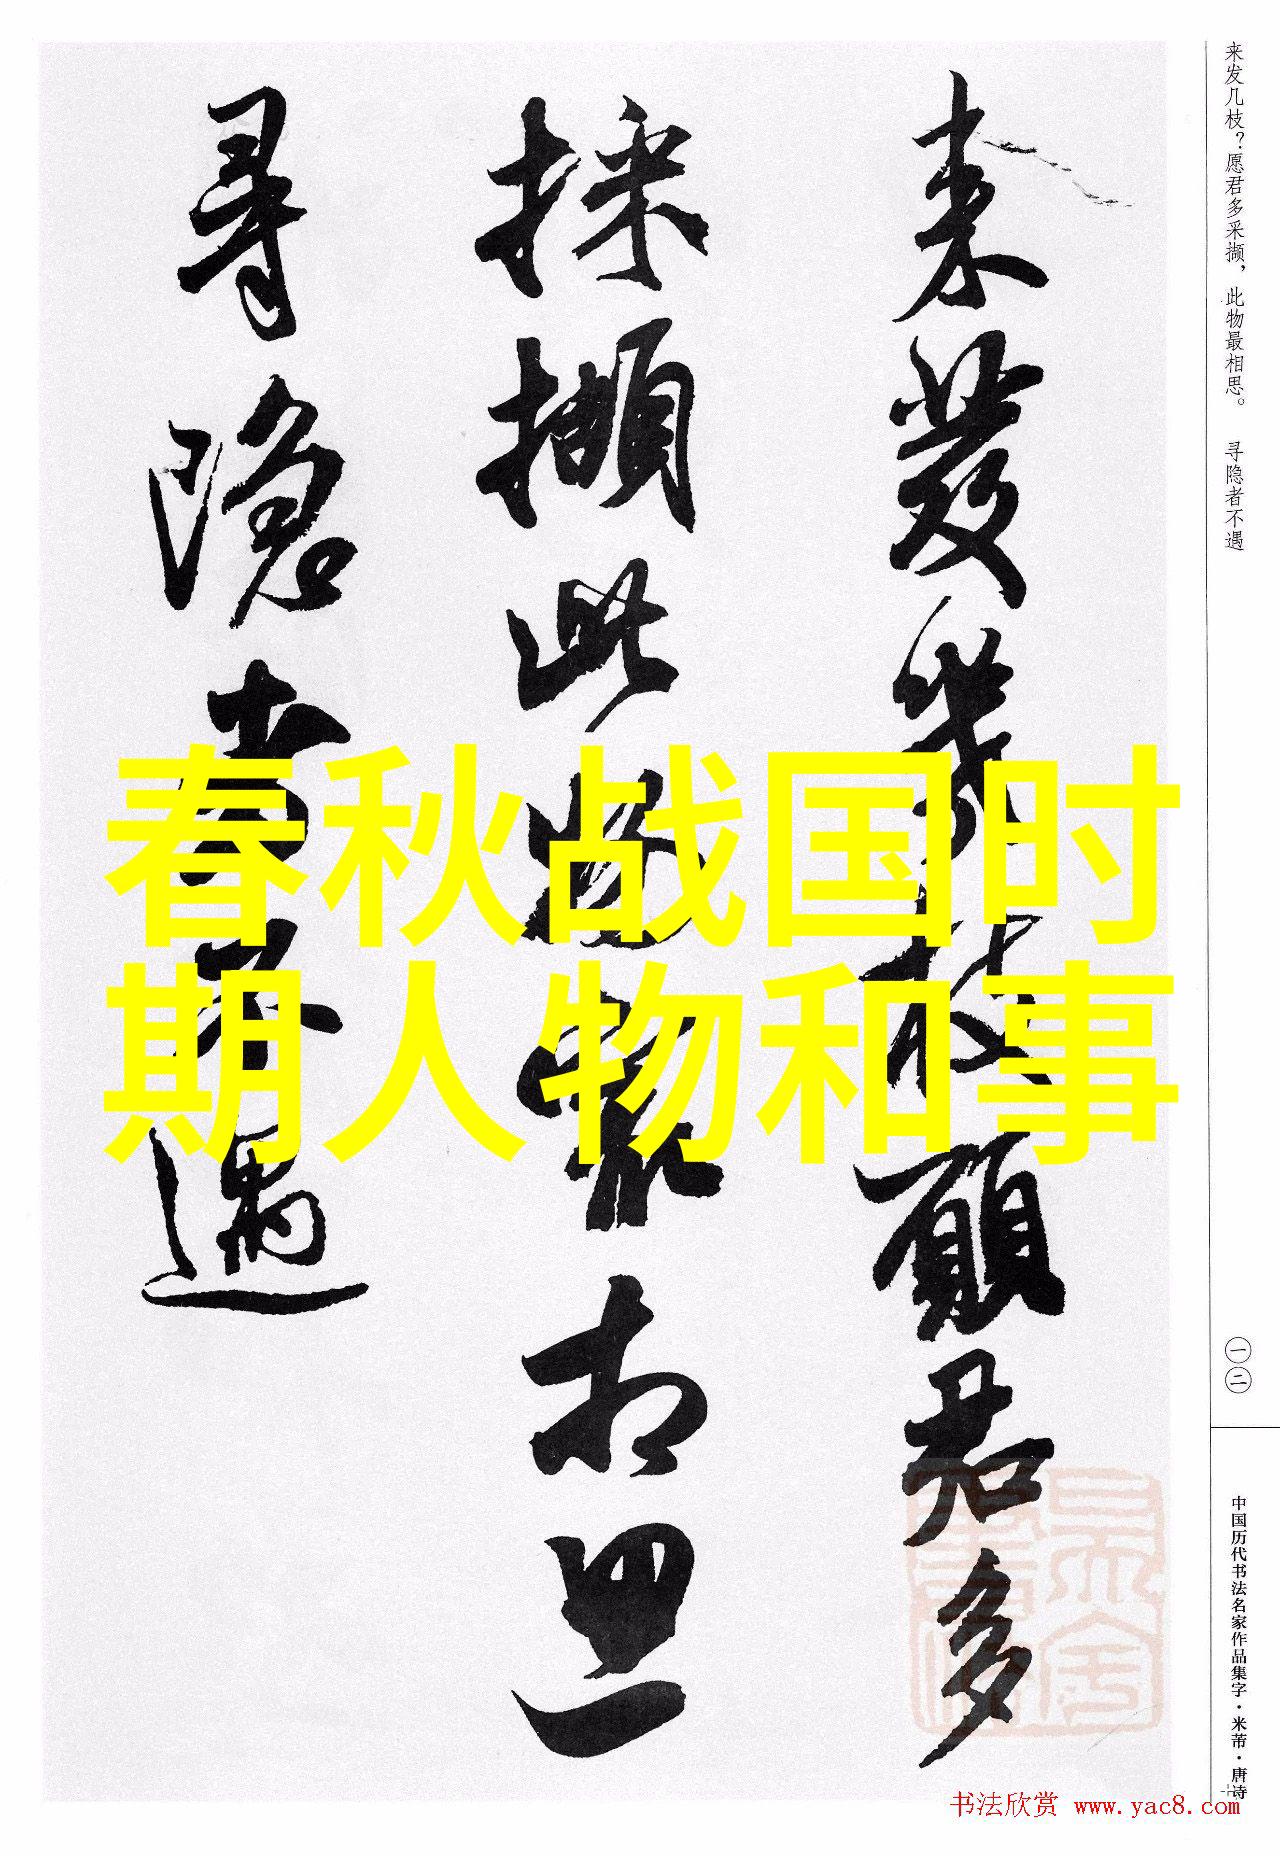 来发几枝？愿君多采撷，此物最相思。 寻隐者不遇
一二
中国历代书法名家作品集字·米芾·唐诗
来發幾枝願君多
採擷此物最相思
尋隱者不遇
春秋战国时
期人物和事
书法欣赏 www.yac8.com